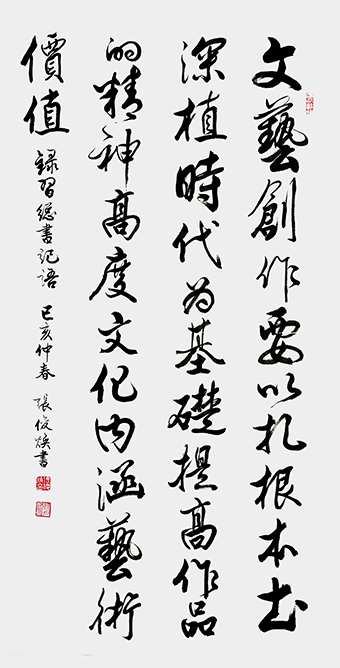 文藝創作要以扎根本土
深植時代为基礎提高作品
的精神高度文化内涵藝術
價值
録習總書记语 己亥仲春 張俊煥書